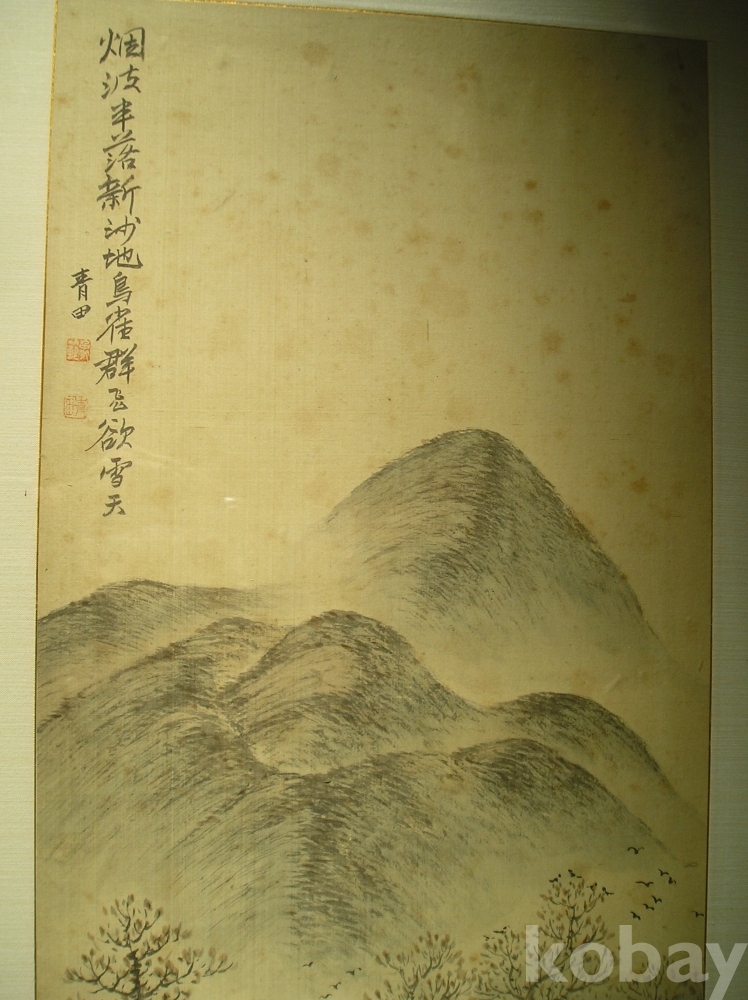 烟波半落新沙地鳥雀群飛欲雪天
青田
kobay